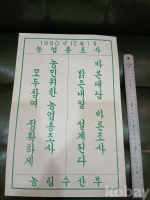 1990년12월1일
농업총조사
바른대답 바른조사
밝은내일 설계된다
농민위한 농업총조사
모두참여 정확하게
농림수산부
kobay